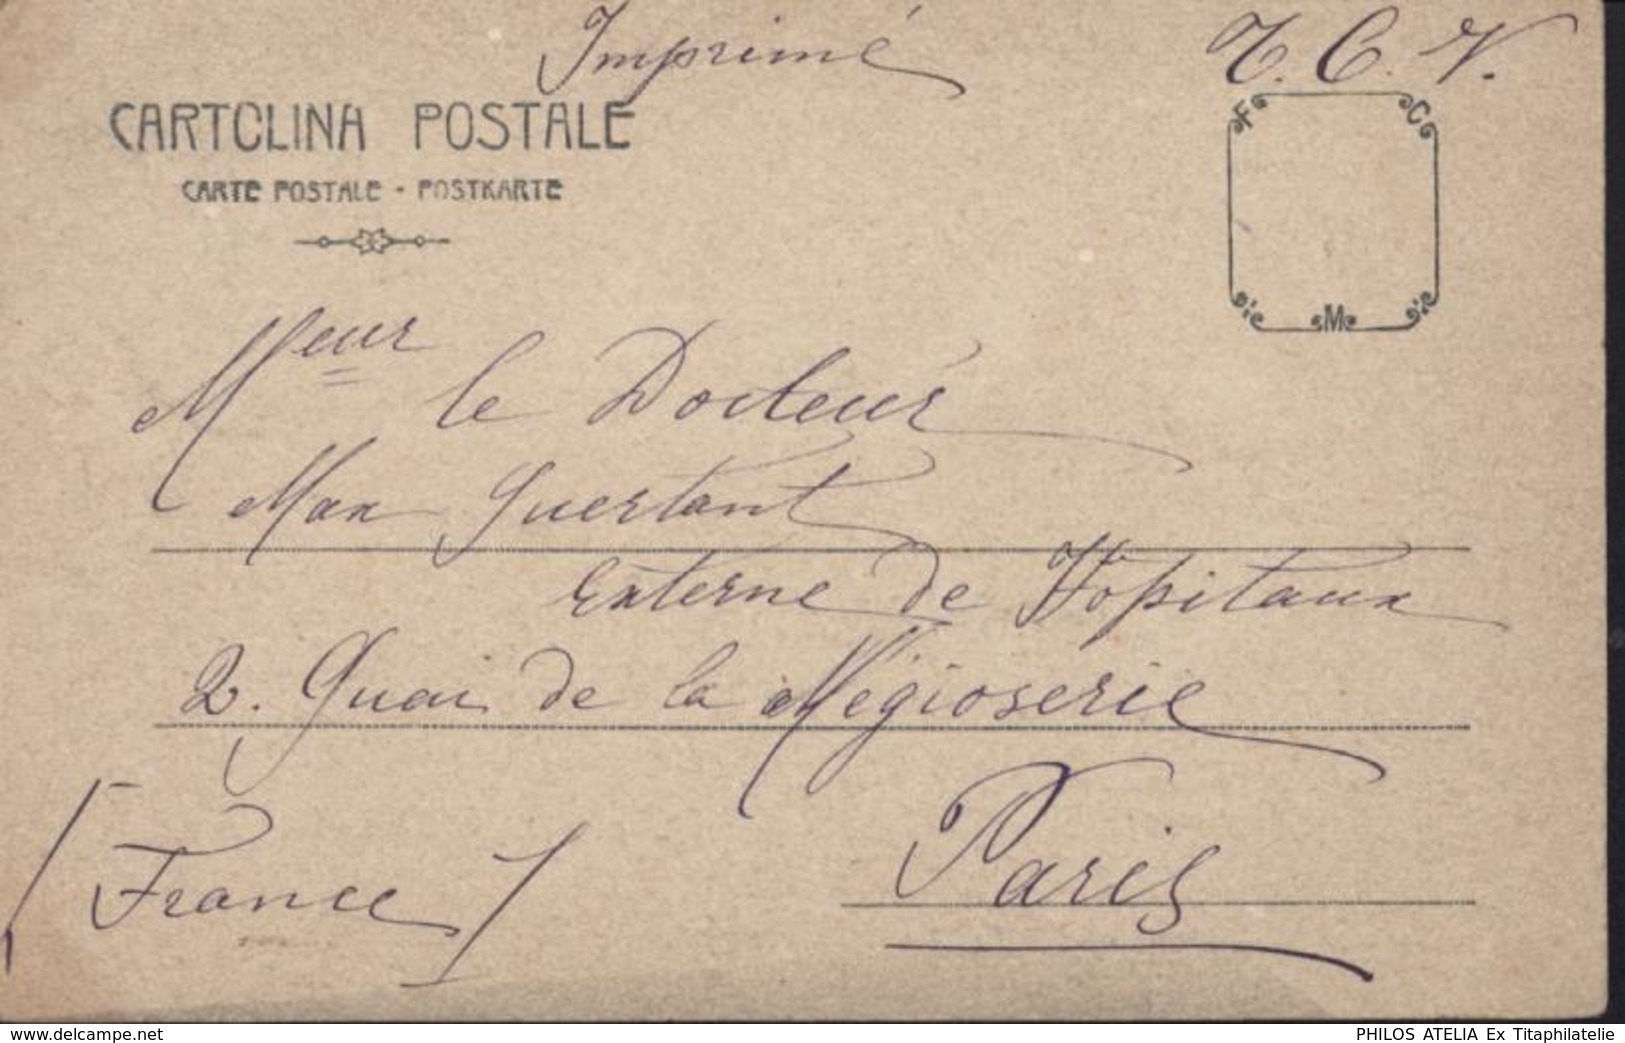 Imprimé T. C. V.
CARTOLINA POSTALE
CARTE POSTALE - POSTKARTE
F C
M
Mieur le Docteur
Max Guertant
Externe de Hopitaux
2. Quai de la Mégioserie
Paris
[France]
www.delcampe.net PHILOS ATELIA Ex Titaphilatelie